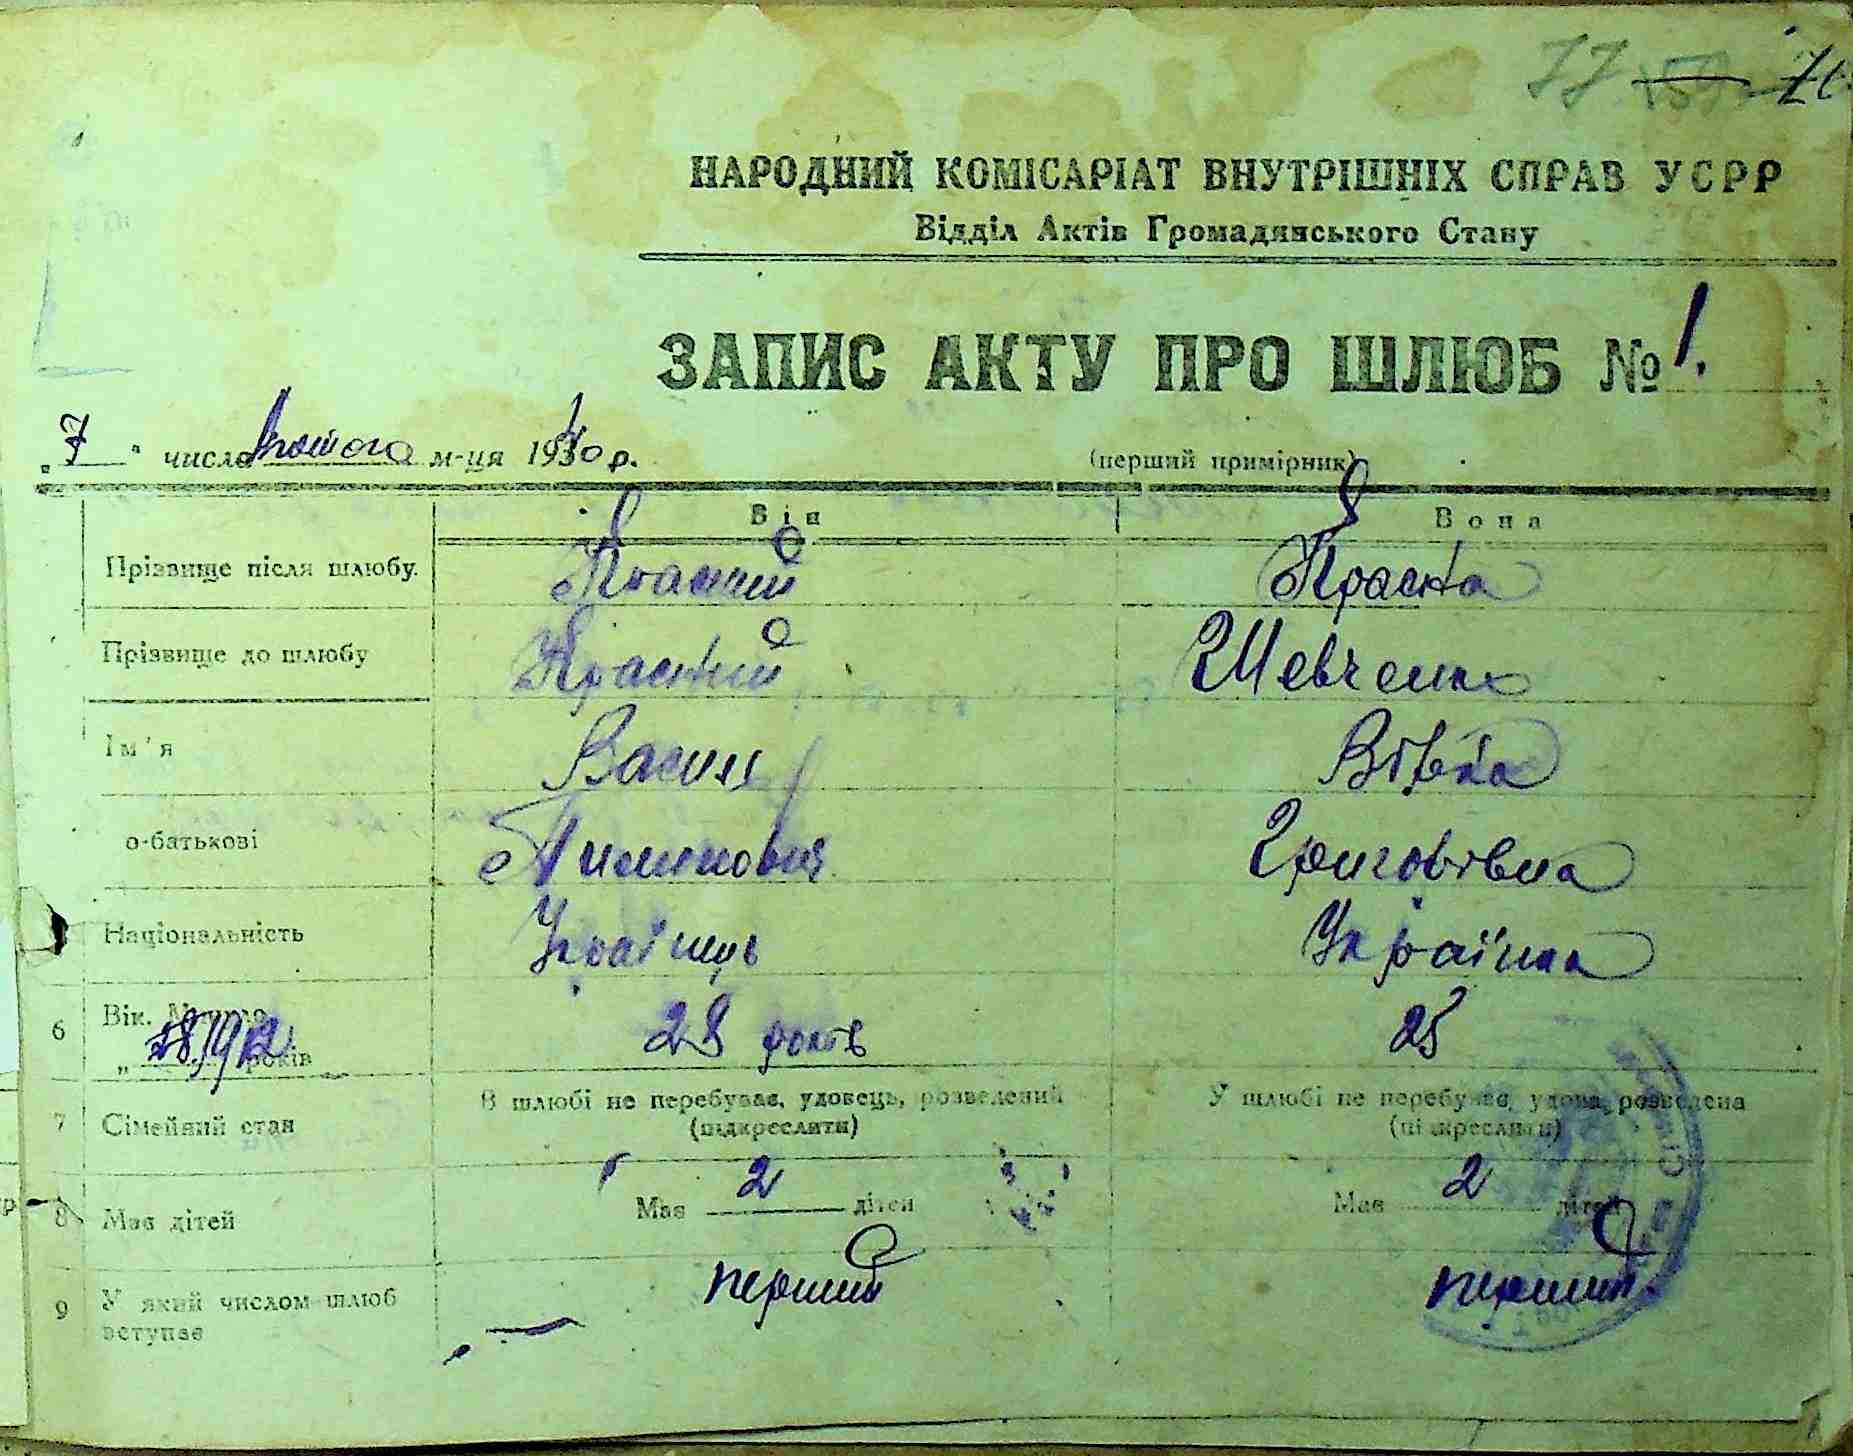 77
НАРОДНИЙ КОМІСАРІАТ ВНУТРІШНІХ СПРАВ УСРР
Відділ Актів Громадянського Стану
ЗАПИС АКТУ ПРО ШЛЮБ № 1.
„7" число лютого м-ця 1940 р. (перший примірник)
Він Вона
Прізвище після шлюбу. Красний Красна
Прізвище до шлюбу Красний Шевченко
Ім'я Василь
о-батькові Григорівна
Національність Українець Українка
6 Вік. 28 років 25
„ років
7 Сімейний стан В шлюбі не перебуває, удовець, розведений У шлюбі не перебуває, удова, розведена
(підкреслити) (підкреслити)
8 Має дітей Має 2 дітей Має 2 дітей
9 У який числом шлюб вступає перший перший.